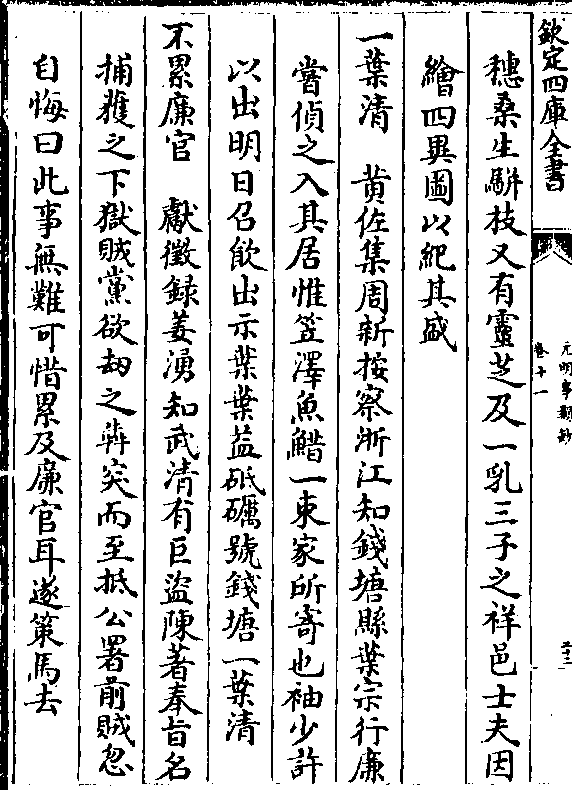 欽定四庫全書
元明事類鈔
卷十一
穗桑生駢枝又有靈芝及一乳三子之祥邑士夫因
繪四異圖以紀其盛
一葉清　黄佐集周新按察浙江知錢塘縣葉宗行廉
嘗偵之入其居惟笠澤魚鱛一束家所寄也袖少許
以出明日召飲出示葉葉益砥礪號錢塘一葉清
不累廉官　獻徵録姜湧知武清有巨盜陳著奉旨名
捕獲之下獄賊黨欲刼之犇突而至抵公署前賊忽
自悔曰此事無難可惜累及廉官耳遂策馬去